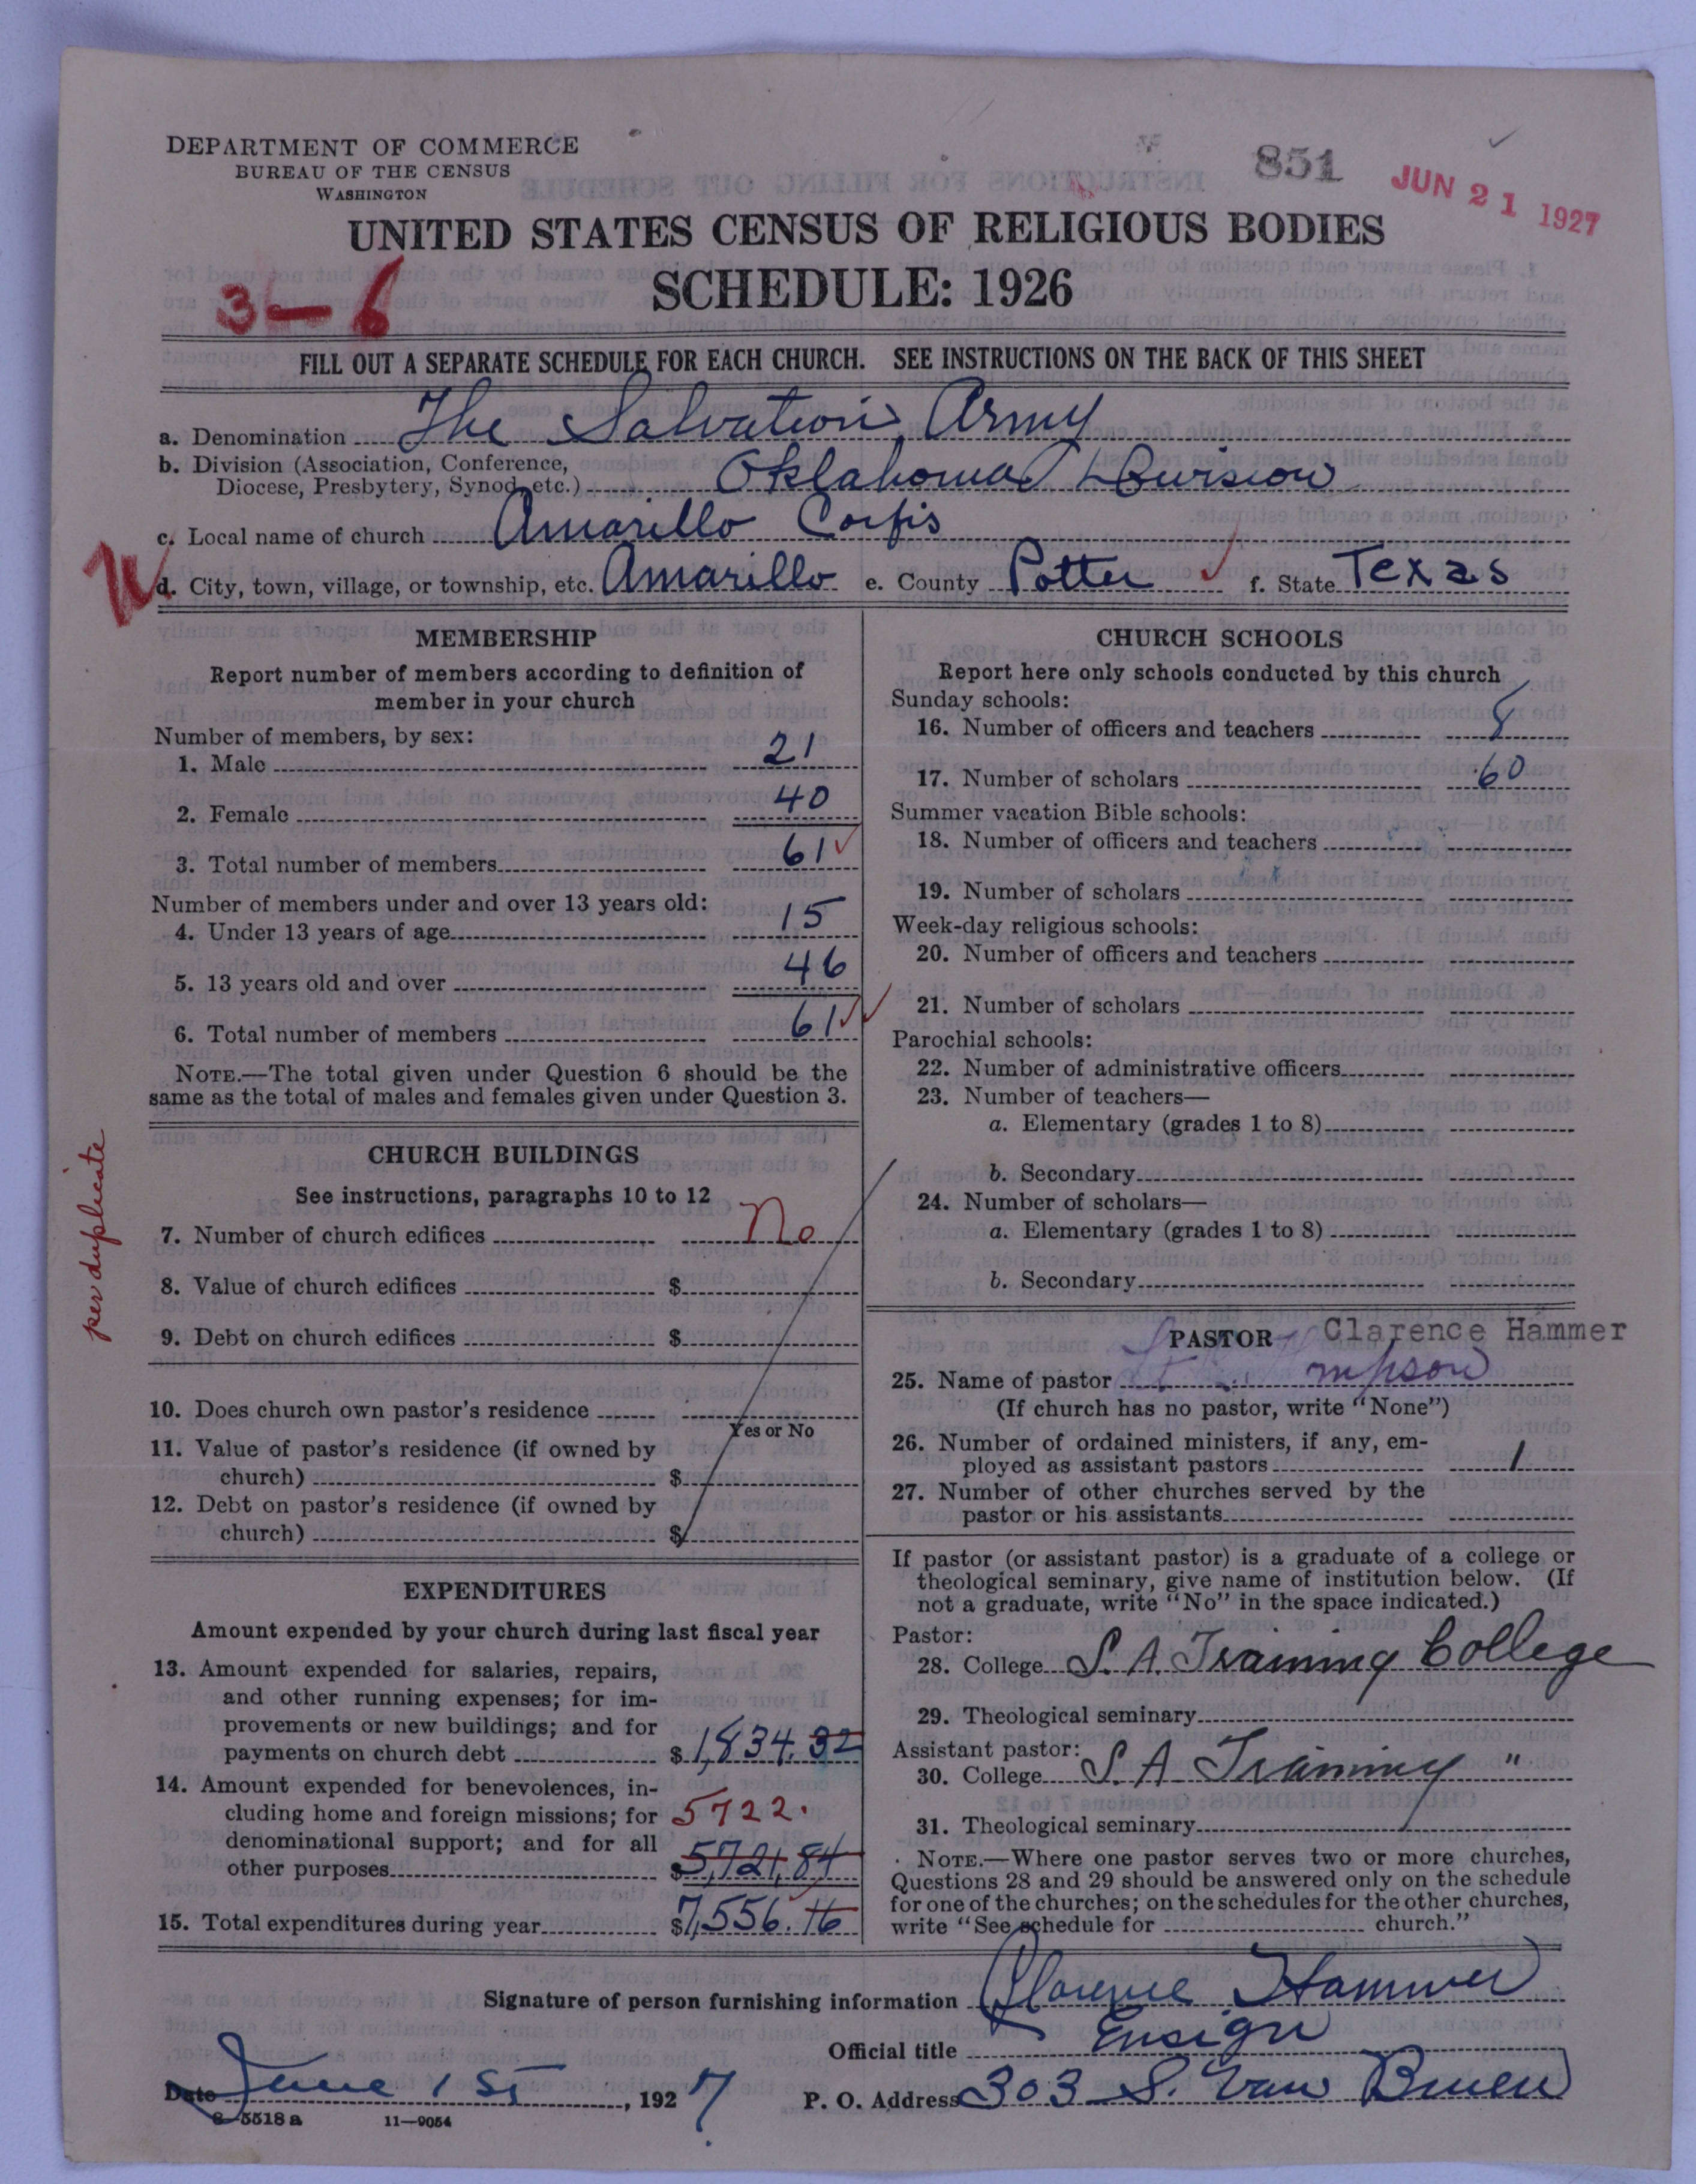 DEPARTMENT OF COMMERCE
BUREAU OF THE CENSUS
WASHINGTON
851
JUN 21 1927
UNITED STATES CENSUS OF RELIGIOUS BODIES
SCHEDULE: 1926
3-6
FILL OUT A SEPARATE SCHEDULE FOR EACH CHURCH. SEE INSTRUCTIONS ON THE BACK OF THIS SHEET
a. Denomination The Salvation Army
b. Division (Association, Conference, Diocese, Presbytery, Synod, etc.) Oklahoma Division
c. Local name of church Amarillo Corps
d. City, town, village, or township, etc. Amarillo e. County Potter f. State Texas
MEMBERSHIP
Report number of members according to definition of
member in your church
Number of members, by sex:
1. Male 21
2. Female 40
3. Total number of members 61
Number of members under and over 13 years old:
4. Under 13 years of age 15
5. 13 years old and over 46
6. Total number of members 61
NOTE.—The total given under Question 6 should be the
same as the total of males and females given under Question 3.
per duplicate
CHURCH BUILDINGS
See instructions, paragraphs 10 to 12
7. Number of church edifices No
8. Value of church edifices $
9. Debt on church edifices $
10. Does church own pastor's residence
Yes or No
11. Value of pastor's residence (if owned by
church) $
12. Debt on pastor's residence (if owned by
church) $
EXPENDITURES
Amount expended by your church during last fiscal year
13. Amount expended for salaries, repairs,
and other running expenses; for im-
provements or new buildings; and for
payments on church debt $1,834.32
14. Amount expended for benevolences, in-
cluding home and foreign missions; for 5722.
denominational support; and for all
other purposes $5,721.84
15. Total expenditures during year $7,556.16
CHURCH SCHOOLS
Report here only schools conducted by this church
Sunday schools:
16. Number of officers and teachers 8
17. Number of scholars 60
Summer vacation Bible schools:
18. Number of officers and teachers
19. Number of scholars
Week-day religious schools:
20. Number of officers and teachers
21. Number of scholars
Parochial schools:
22. Number of administrative officers
23. Number of teachers—
a. Elementary (grades 1 to 8)
b. Secondary
24. Number of scholars—
a. Elementary (grades 1 to 8)
b. Secondary
PASTOR Clarence Hammer
25. Name of pastor
(If church has no pastor, write "None")
26. Number of ordained ministers, if any, em-
ployed as assistant pastors 1
27. Number of other churches served by the
pastor or his assistants
If pastor (or assistant pastor) is a graduate of a college or
theological seminary, give name of institution below. (If
not a graduate, write "No" in the space indicated.)
Pastor:
28. College S. A. Training College
29. Theological seminary
Assistant pastor:
30. College S. A Training "
31. Theological seminary
NOTE.—Where one pastor serves two or more churches,
Questions 28 and 29 should be answered only on the schedule
for one of the churches; on the schedules for the other churches,
write "See schedule for church."
Signature of person furnishing information Clarence Hammer
Official title Ensign
Date June 1st, 1927 P. O. Address 303 S. Van Buren
8-5518a 11-9054